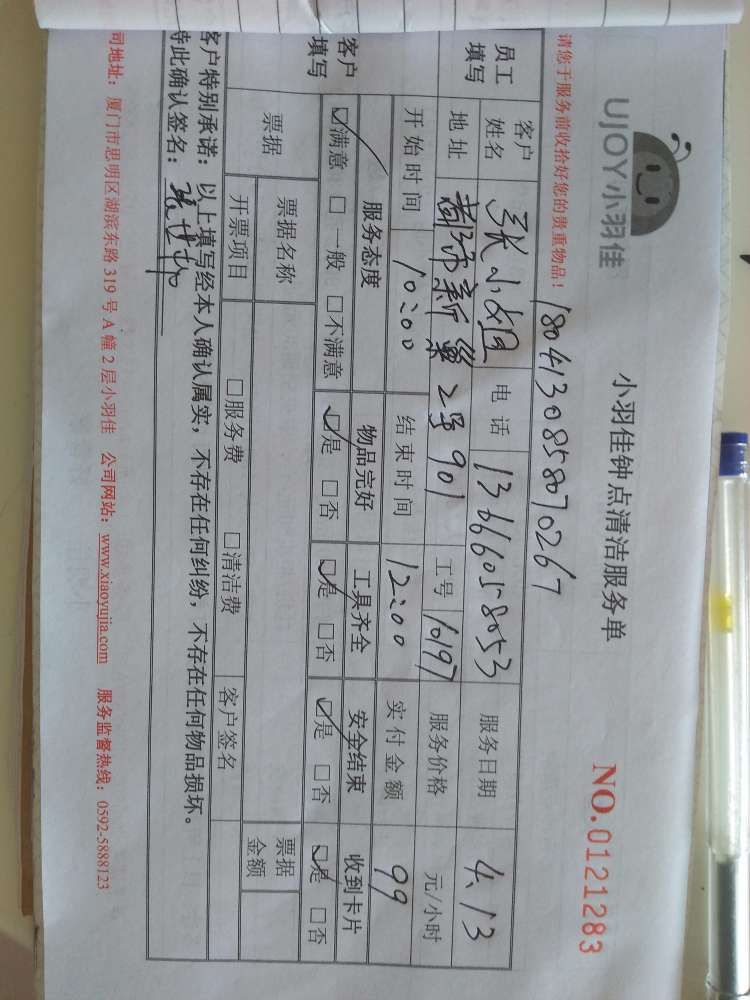 UJOY小羽佳
小羽佳钟点清洁服务单
NO.0121283
请您于服务前收拾好您的贵重物品！
1804130858070267
员工填写
客户姓名 张小姐 电话 13666058053 服务日期 4.13
地址 新巢2号901 工号 10197 服务价格 元/小时
开始时间 10:00 结束时间 12:00 实付金额 99
客户填写
服务态度 物品完好 工具齐全 安全结束 收到卡片
☑满意 □一般 □不满意 ☑是 □否 ☑是 □否 ☑是 □否 ☑是 □否
票据 票据名称 票据金额
开票项目 □服务费 □清洁费 客户签名
客户特别承诺：以上填写经本人确认属实，不存在任何纠纷，不存在任何物品损坏。
特此确认签名：
司地址：厦门市思明区湖滨东路319号A幢2层小羽佳 公司网站：www.xiaoyujia.com 服务监督热线：0592-5888123